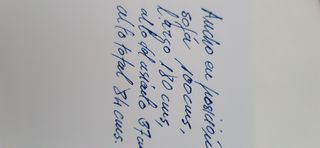 Ancho en posición
sofa 100cms,
Largo 180 cms,
alto del asiento 37cm
alto total 84 cms.